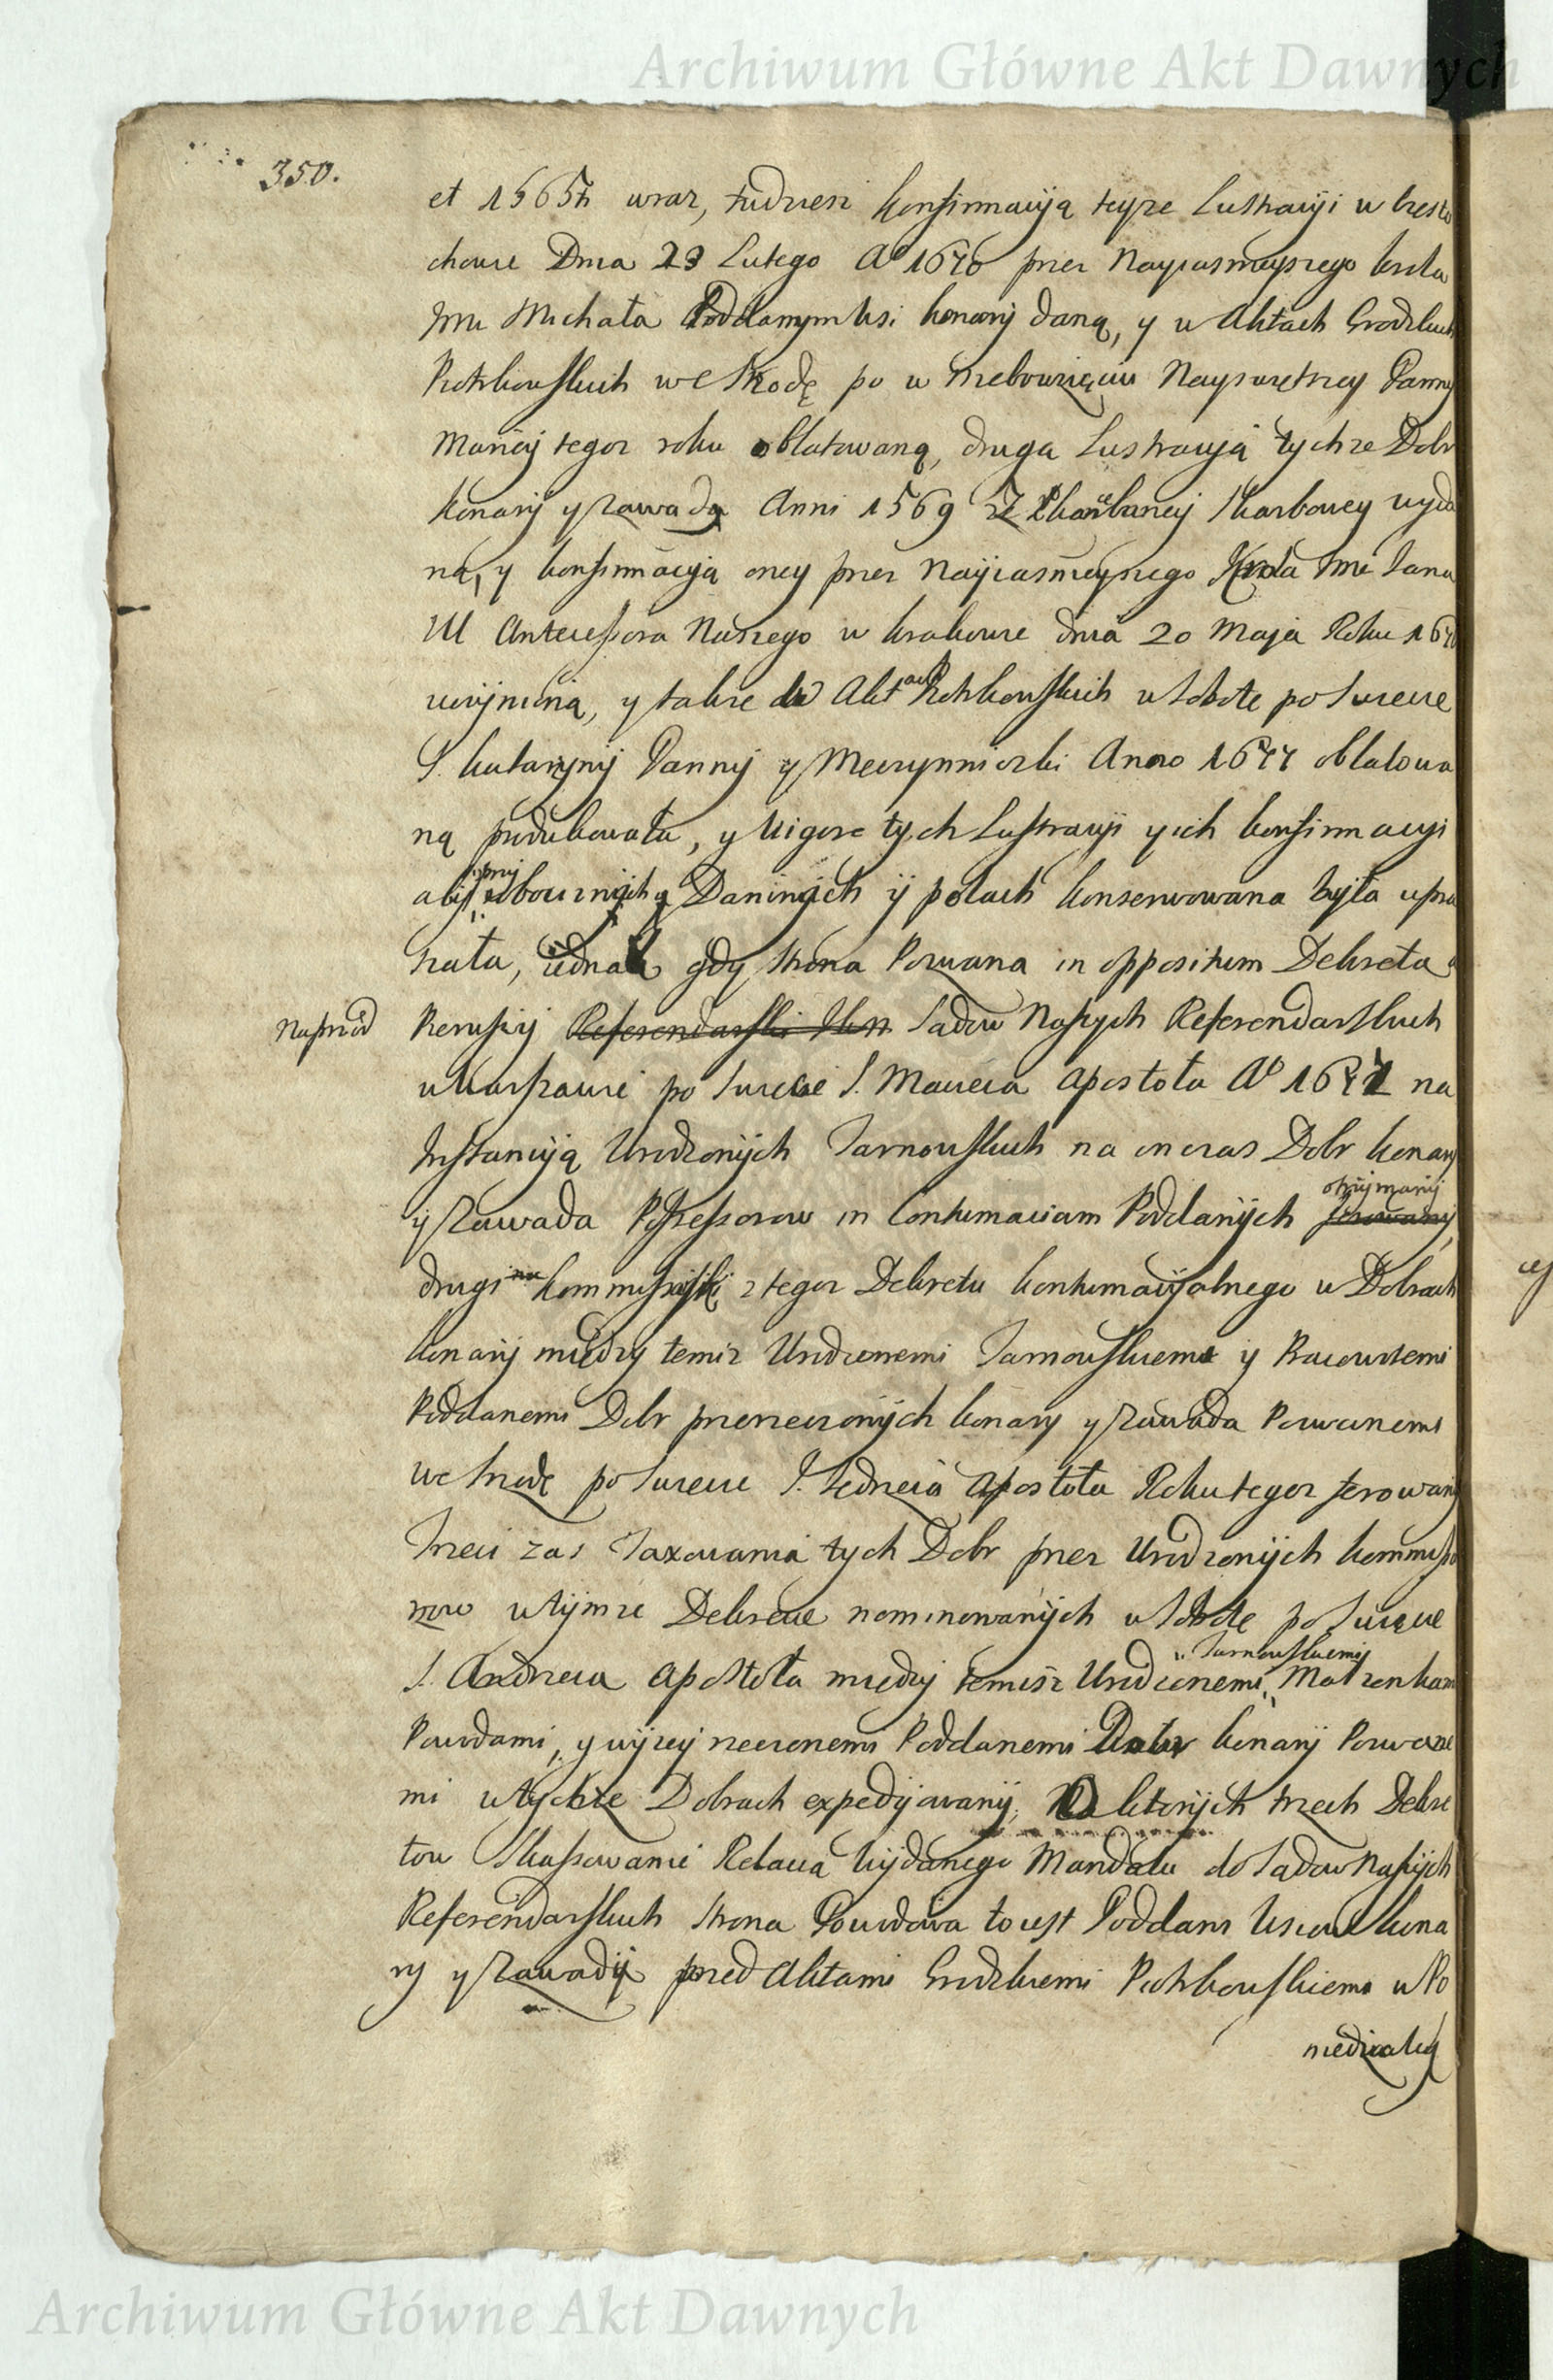 Archiwum Główne Akt Dawnych
350.
et 1565th wraz, tudziesz konfirmacyią teyże Lustracyi w Czesto
chowie Dnia 29 Lutego Ao 1670 przez Nayiasnieyszego krola
Jmci Michała Poddanym wsi konary daną, y w Aktach Grodzkich
Piotrkowskich we Srodę po w Niebowzięciu Nayswiętszey Panny
Maryi tegoz roku oblatowaną, druga Lustracyią tychze Dobr
Konary y Zawada Anni 1569 ze Skarbcney Skarbowey wyda
ną, y konfirmacyią oney przez Nayiasnieyszego Krola Jmci Jana
III Antecessora Naszego w krakowie dnia 20 Maja Roku 16
uczynioną, y takze w Aktach Piotrkowskich w Sobotę po Swięcie
S. Katarzyny Panny y Męczynniczki Anno 1677 oblatowa
ną produkowała, y Vigore tych Lustracyi y ich konfirmacyi
aby przy robociznych y Daninych y polach konserwowana była upra
szała, iednak gdy strona Pozwana in oppositum Dekreta
Naprzod
Pierwszy Referendarski Sądow Naszych Referendarskich
w Warszawie po Swięcie S. Macieia Apostoła Ao 1671 na
Instancyią Urodzonych Tarnowskich na on czas Dobr konary
y Zawada Possessorow in Contumaciam Poddanych ferowany otrzymany
drugi kommissyiski z tegoz Dekretu kontumacyialnego w Dobrach
konary między temiz Urodzonemi Tarnowskiemi y Pracowitemi
Poddanemi Dobr przerzeczonych konary y Zawada Pozwanemi
we Srodę po Swięcie S. Jędrzeia Apostoła Roku tegoz ferowany
Trzeci zas Taxowania tych Dobr przez Urodzonych kommisso
rzow w tymze Dekrecie nominowanych w Sobotę po Swięcie
S. Andrzeia Apostoła między temisz Urodzonemi Tarnowskiemi Małzonkami
Powodami, y wyzey rzeczonemi Poddanemi Dobr konary Pozwane
mi w tychze Dobrach expedyiowany, O ktorych trzech Dekre
tow Skassowanie Relacia wydanego Mandatu do Sądow Naszych
Referendarskich Strona Powodowa to iest Poddani Wsiow kona
ry y Zawady przed Aktami Grodzkiemi Piotrkowskiemi w Po
niedziałek
Archiwum Główne Akt Dawnych